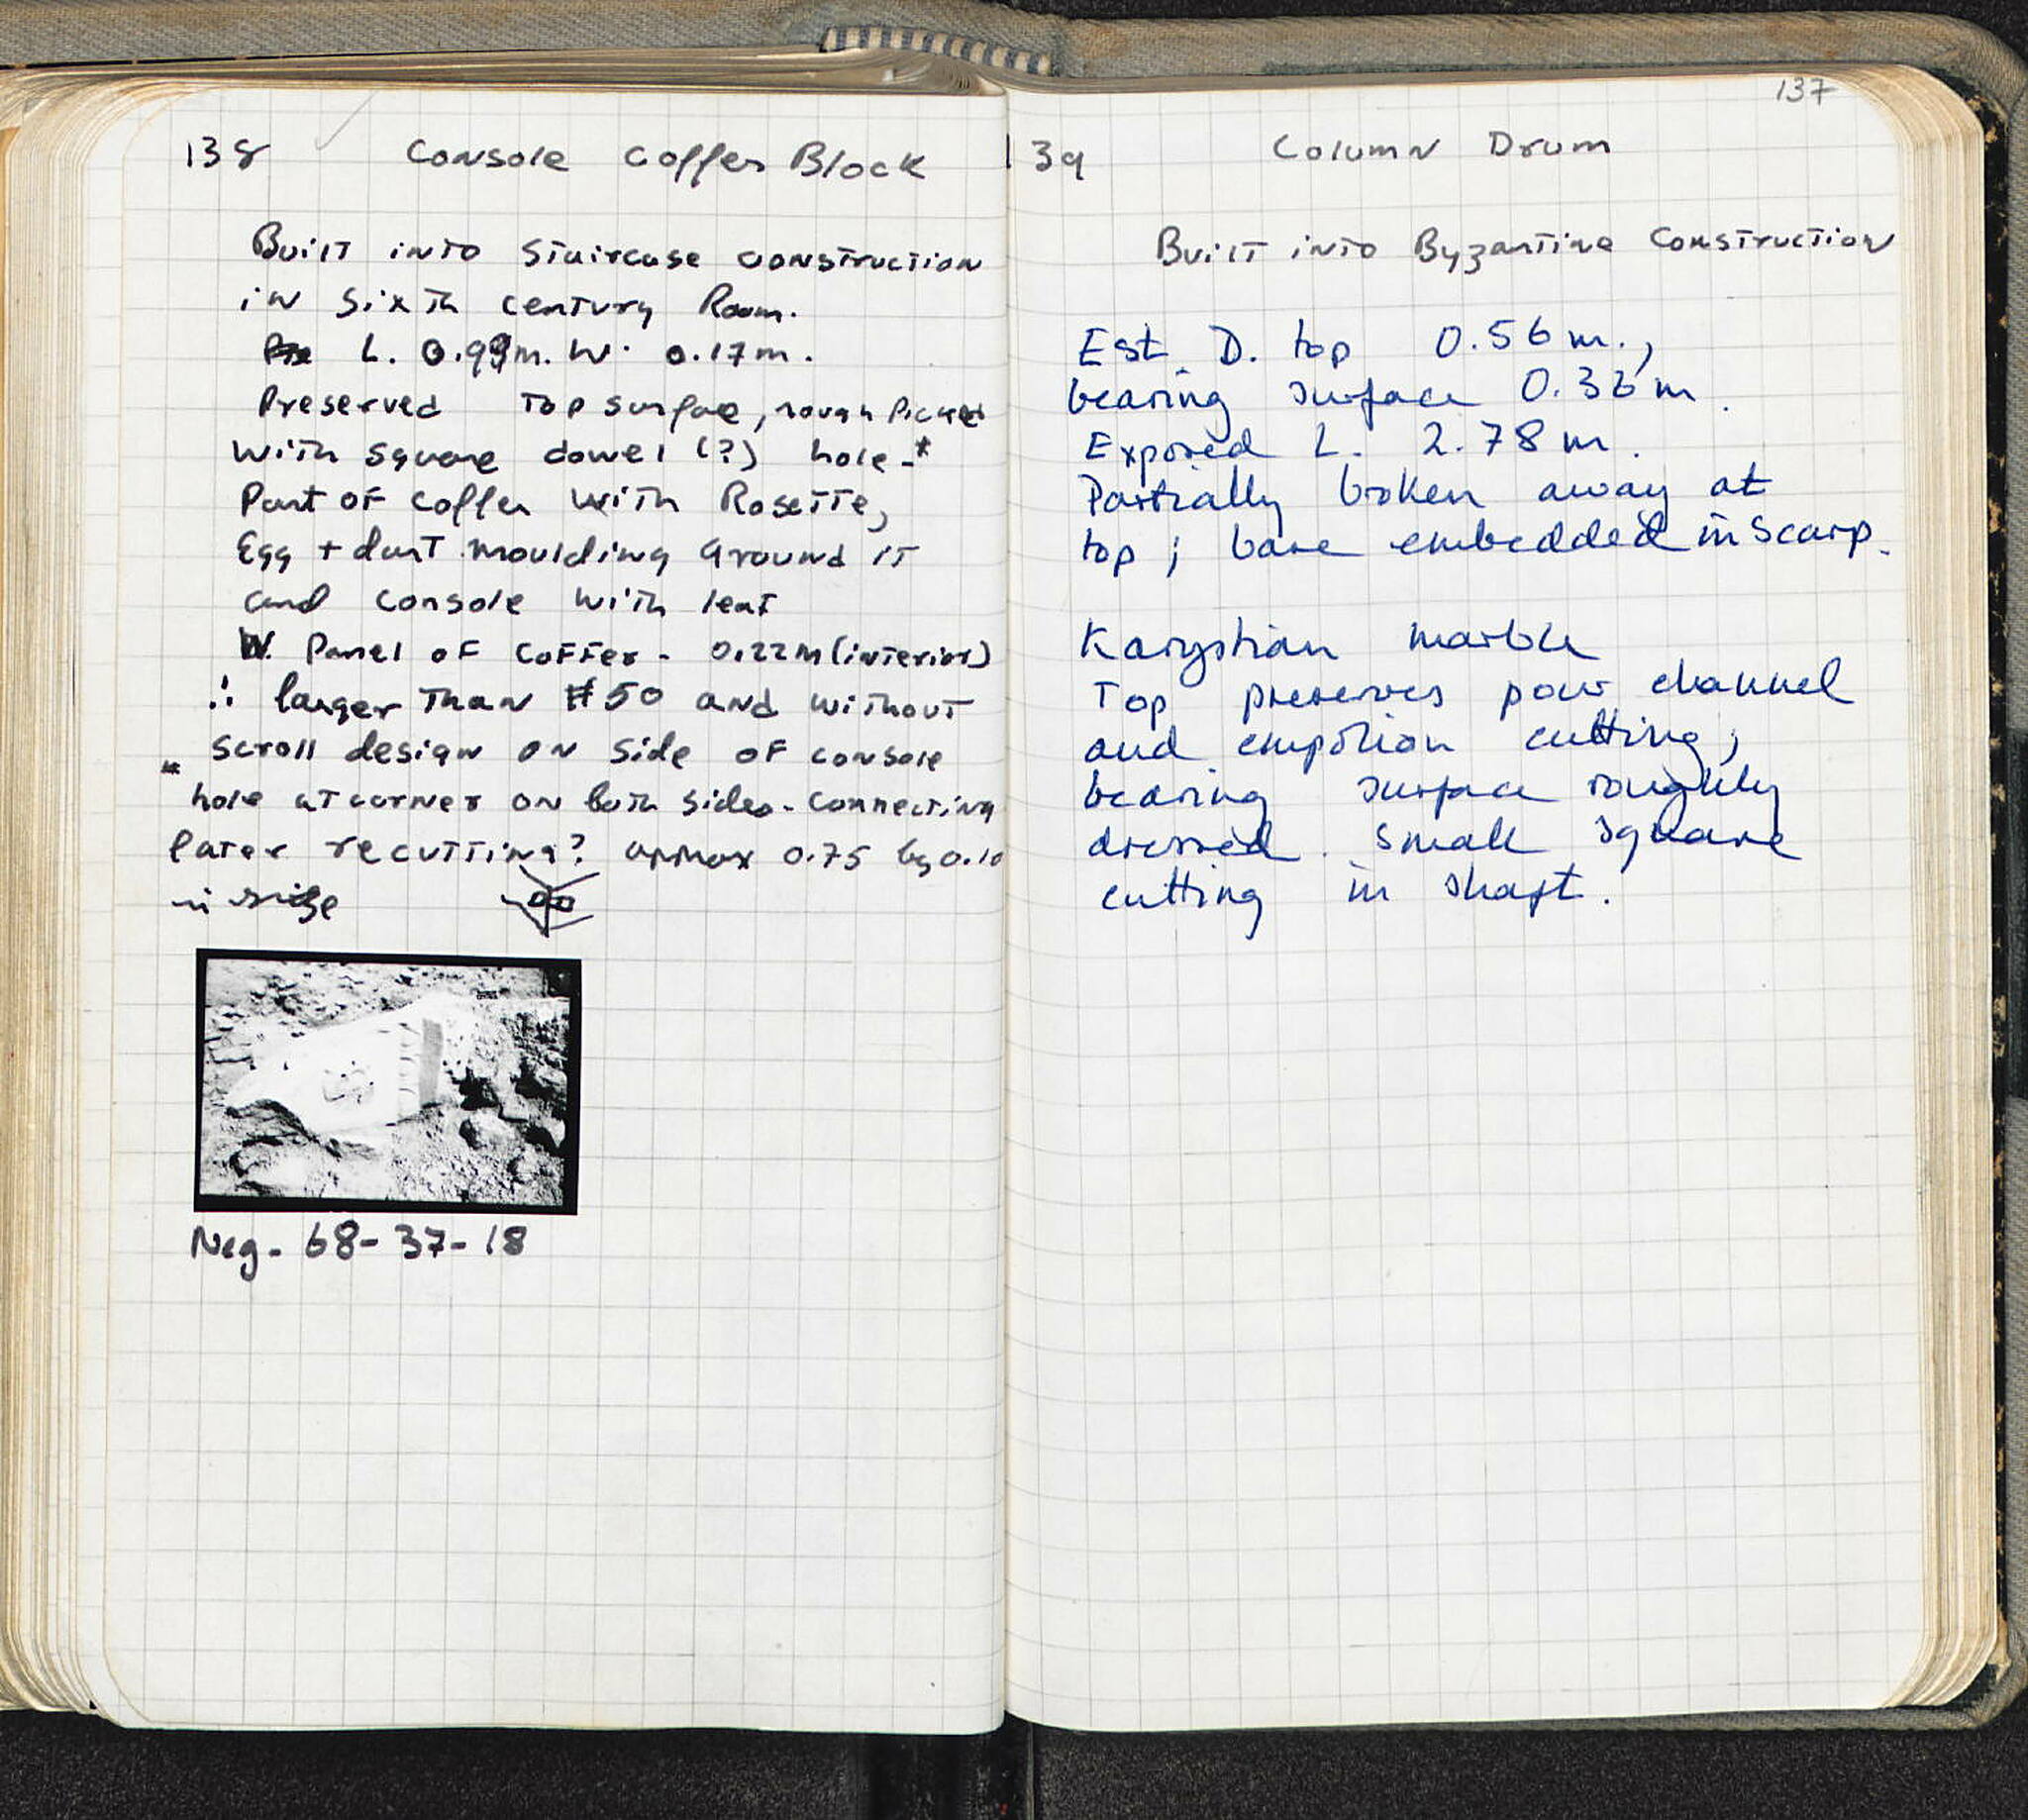 138 Console Coffer Block
Built into Staircase construction
in Sixth century Room.
L. 0.99m. W. 0.17m.
Preserved Top surface, rough Picked
with square dowel (?) hole-*
Part of coffer with Rosette,
Egg + dart moulding around it
and console with leaf
W. Panel of coffer - 0.22m (interior)
∴ larger than #50 and without
scroll design on side of console
* hole at corner on both sides - connecting
later recutting? approx 0.75 by 0.10
in size
Neg- 68-37-18
137
139 Column Drum
Built into Byzantine Construction
Est. D. top 0.56m.,
bearing surface m.
Exposed L. 2.78m.
Partially broken away at
top; base embedded in scarp.
Karystian marble
Top preserves pour channel
and empolion cutting;
bearing surface roughly
dressed. Small square
cutting in shaft.